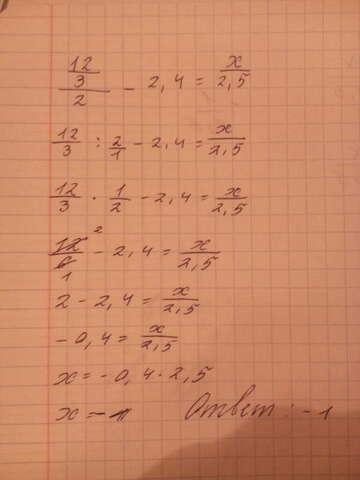 12/3/2 - 2,4 = x/2,5
12/3 : 2/1 - 2,4 = x/2,5
12/3 · 1/2 - 2,4 = x/2,5
12/6 2/1 - 2,4 = x/2,5
2 - 2,4 = x/2,5
-0,4 = x/2,5
x = -0,4 · 2,5
x = -1 Ответ: -1